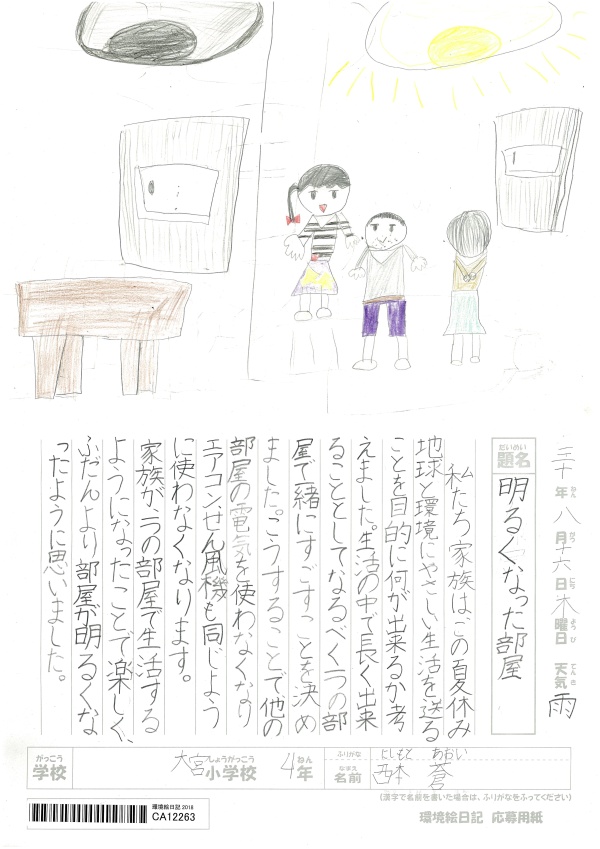 三十年八月十六日木曜日 天気 雨
ねん がつ にち よう び てん き
だいめい
題名 明るくなった部屋
私たち家族はこの夏休み
地球と環境にやさしい生活を送る
ことを目的に何が出来るか考
えました。生活の中で長く出来
ることとしてなるべく一つの部
屋で一緒にすごすことを決め
ました。こうすることで他の
部屋の電気を使わなくなり
エアコン、せん風機も同じよう
に使わなくなります。
家族が一つの部屋で生活する
ようになったことで楽しく、
ふだんより部屋が明るくな
ったように思いました。
がっこう しょうがっこう ねん
学校 大宮小学校 4年
ふりがな にしもと あおい
なまえ
名前 西本 蒼
(漢字で名前を書いた場合は、ふりがなをふってください)
環境絵日記 2018
CA12263
環境絵日記 応募用紙